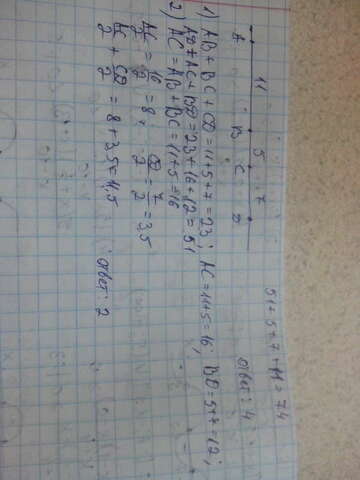 11 5 7
A B C D
1) AB + BC + CD = 11 + 5 + 7 = 23; AC = 11 + 5 = 16; BD = 5 + 7 = 12;
AD + AC + BD = 23 + 16 + 12 = 51
51 + 5 + 7 + 11 = 74
ответ: 4
2) AC = AB + BC = 11 + 5 = 16
AC/2 = 16/2 = 8; CD/2 = 7/2 = 3,5
AC/2 + CD/2 = 8 + 3,5 = 11,5
ответ: 2